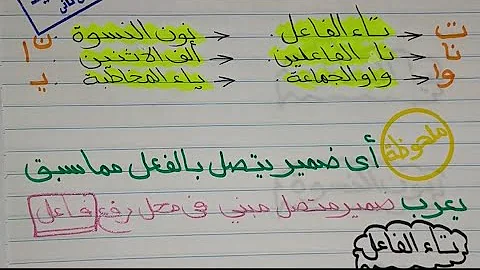 ت تاء الفاعل ← نون النسوة ن
نا نا الفاعلين ← ألف الاثنين ا
وا واو الجماعة ← ياء المخاطبة ي
ملحوظة أى ضمير يتصل بالفعل مما سبق
يعرب ضمير متصل مبني في محل رفع فاعل
تاء الفاعل